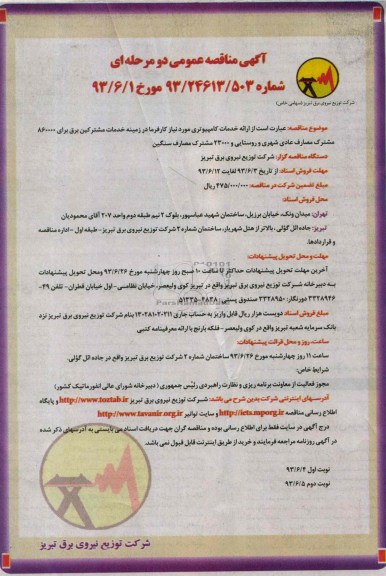 آگهی مناقصه عمومی دو مرحله ای
شماره ۹۳/۲۴۶۱۳/۵۰۳ مورخ ۹۳/۶/۱
شرکت توزیع نیروی برق تبریز (سهامی خاص)
موضوع مناقصه: عبارت است از ارائه خدمات کامپیوتری مورد نیاز کارفرما در زمینه خدمات مشترکین برق برای ۸۶۰۰۰۰
مشترک مصارف عادی شهری و روستایی و ۲۳۰۰۰ مشترک مصارف سنگین
دستگاه مناقصه گزار: شرکت توزیع نیروی برق تبریز
مهلت فروش اسناد: از تاریخ ۹۳/۶/۳ لغایت ۹۳/۶/۱۲
مبلغ تضمین شرکت در مناقصه: ۴۷۵/۰۰۰/۰۰۰ ریال
محل فروش اسناد:
تهران: میدان ونک، خیابان برزیل، ساختمان شهید عباسپور، بلوک ۲ نیم طبقه دوم واحد ۲۰۷ آقای محمودیان
تبریز: جاده ائل گؤلی، بالاتر از هتل شهریار، ساختمان شماره ۲ شرکت توزیع نیروی برق تبریز- طبقه اول - اداره مناقصه
و قراردادها.
مهلت و محل تحویل پیشنهادات:
آخرین مهلت تحویل پیشنهادات حداکثر تا ساعت ۱۰ صبح روز چهارشنبه مورخ ۹۳/۶/۲۶ ومحل تحویل پیشنهادات
به دبیرخانه شرکت توزیع نیروی برق تبریز واقع در تبریز کوی ولیعصر، خیابان نظامی-اول خیابان قطران- تلفن ۴۹-
۳۳۲۸۹۴۶ دورنگار: ۳۳۲۸۹۵۰ صندوق پستی: ۴۸۳۸-۵۱۳۳۵
مبلغ فروش اسناد دویست هزار ریال قابل واریز به حساب جاری ۱۳۰۲۸۱۰۲۰۲۱۱ بنام شرکت توزیع نیروی برق تبریز نزد
بانک سرمایه شعبه تبریز واقع در کوی ولیعصر - فلکه بارنج با ارائه معرفینامه کتبی
ساعت، روز و محل قرائت پیشنهادات:
ساعت ۱۱ روز چهارشنبه مورخ ۹۳/۶/۲۶ ساختمان شماره ۲ شرکت توزیع نیروی برق تبریز واقع در جاده ائل گؤلی.
شرایط خاص:
مجوز فعالیت از معاونت برنامه ریزی و نظارت راهبردی رئیس جمهوری (دبیرخانه شورای عالی انفورماتیک کشور)
آدرسهای اینترنتی شرکت بدین شرح می باشد: شرکت توزیع نیروی برق تبریز http://www.toztab.ir و پایگاه
اطلاع رسانی مناقصه http://iets.mporg.ir و سایت توانیر http://www.tavanir.org.ir
درج آگهی در سایت فقط برای اطلاع رسانی بوده و مناقصه گران جهت دریافت اسناد می بایستی به آدرسهای ذکر شده
در آگهی روزنامه مراجعه فرمایند و خرید از طریق اینترنت قابل قبول نمی باشد.
نوبت اول ۹۳/۶/۴
نوبت دوم ۹۳/۶/۵
شرکت توزیع نیروی برق تبریز